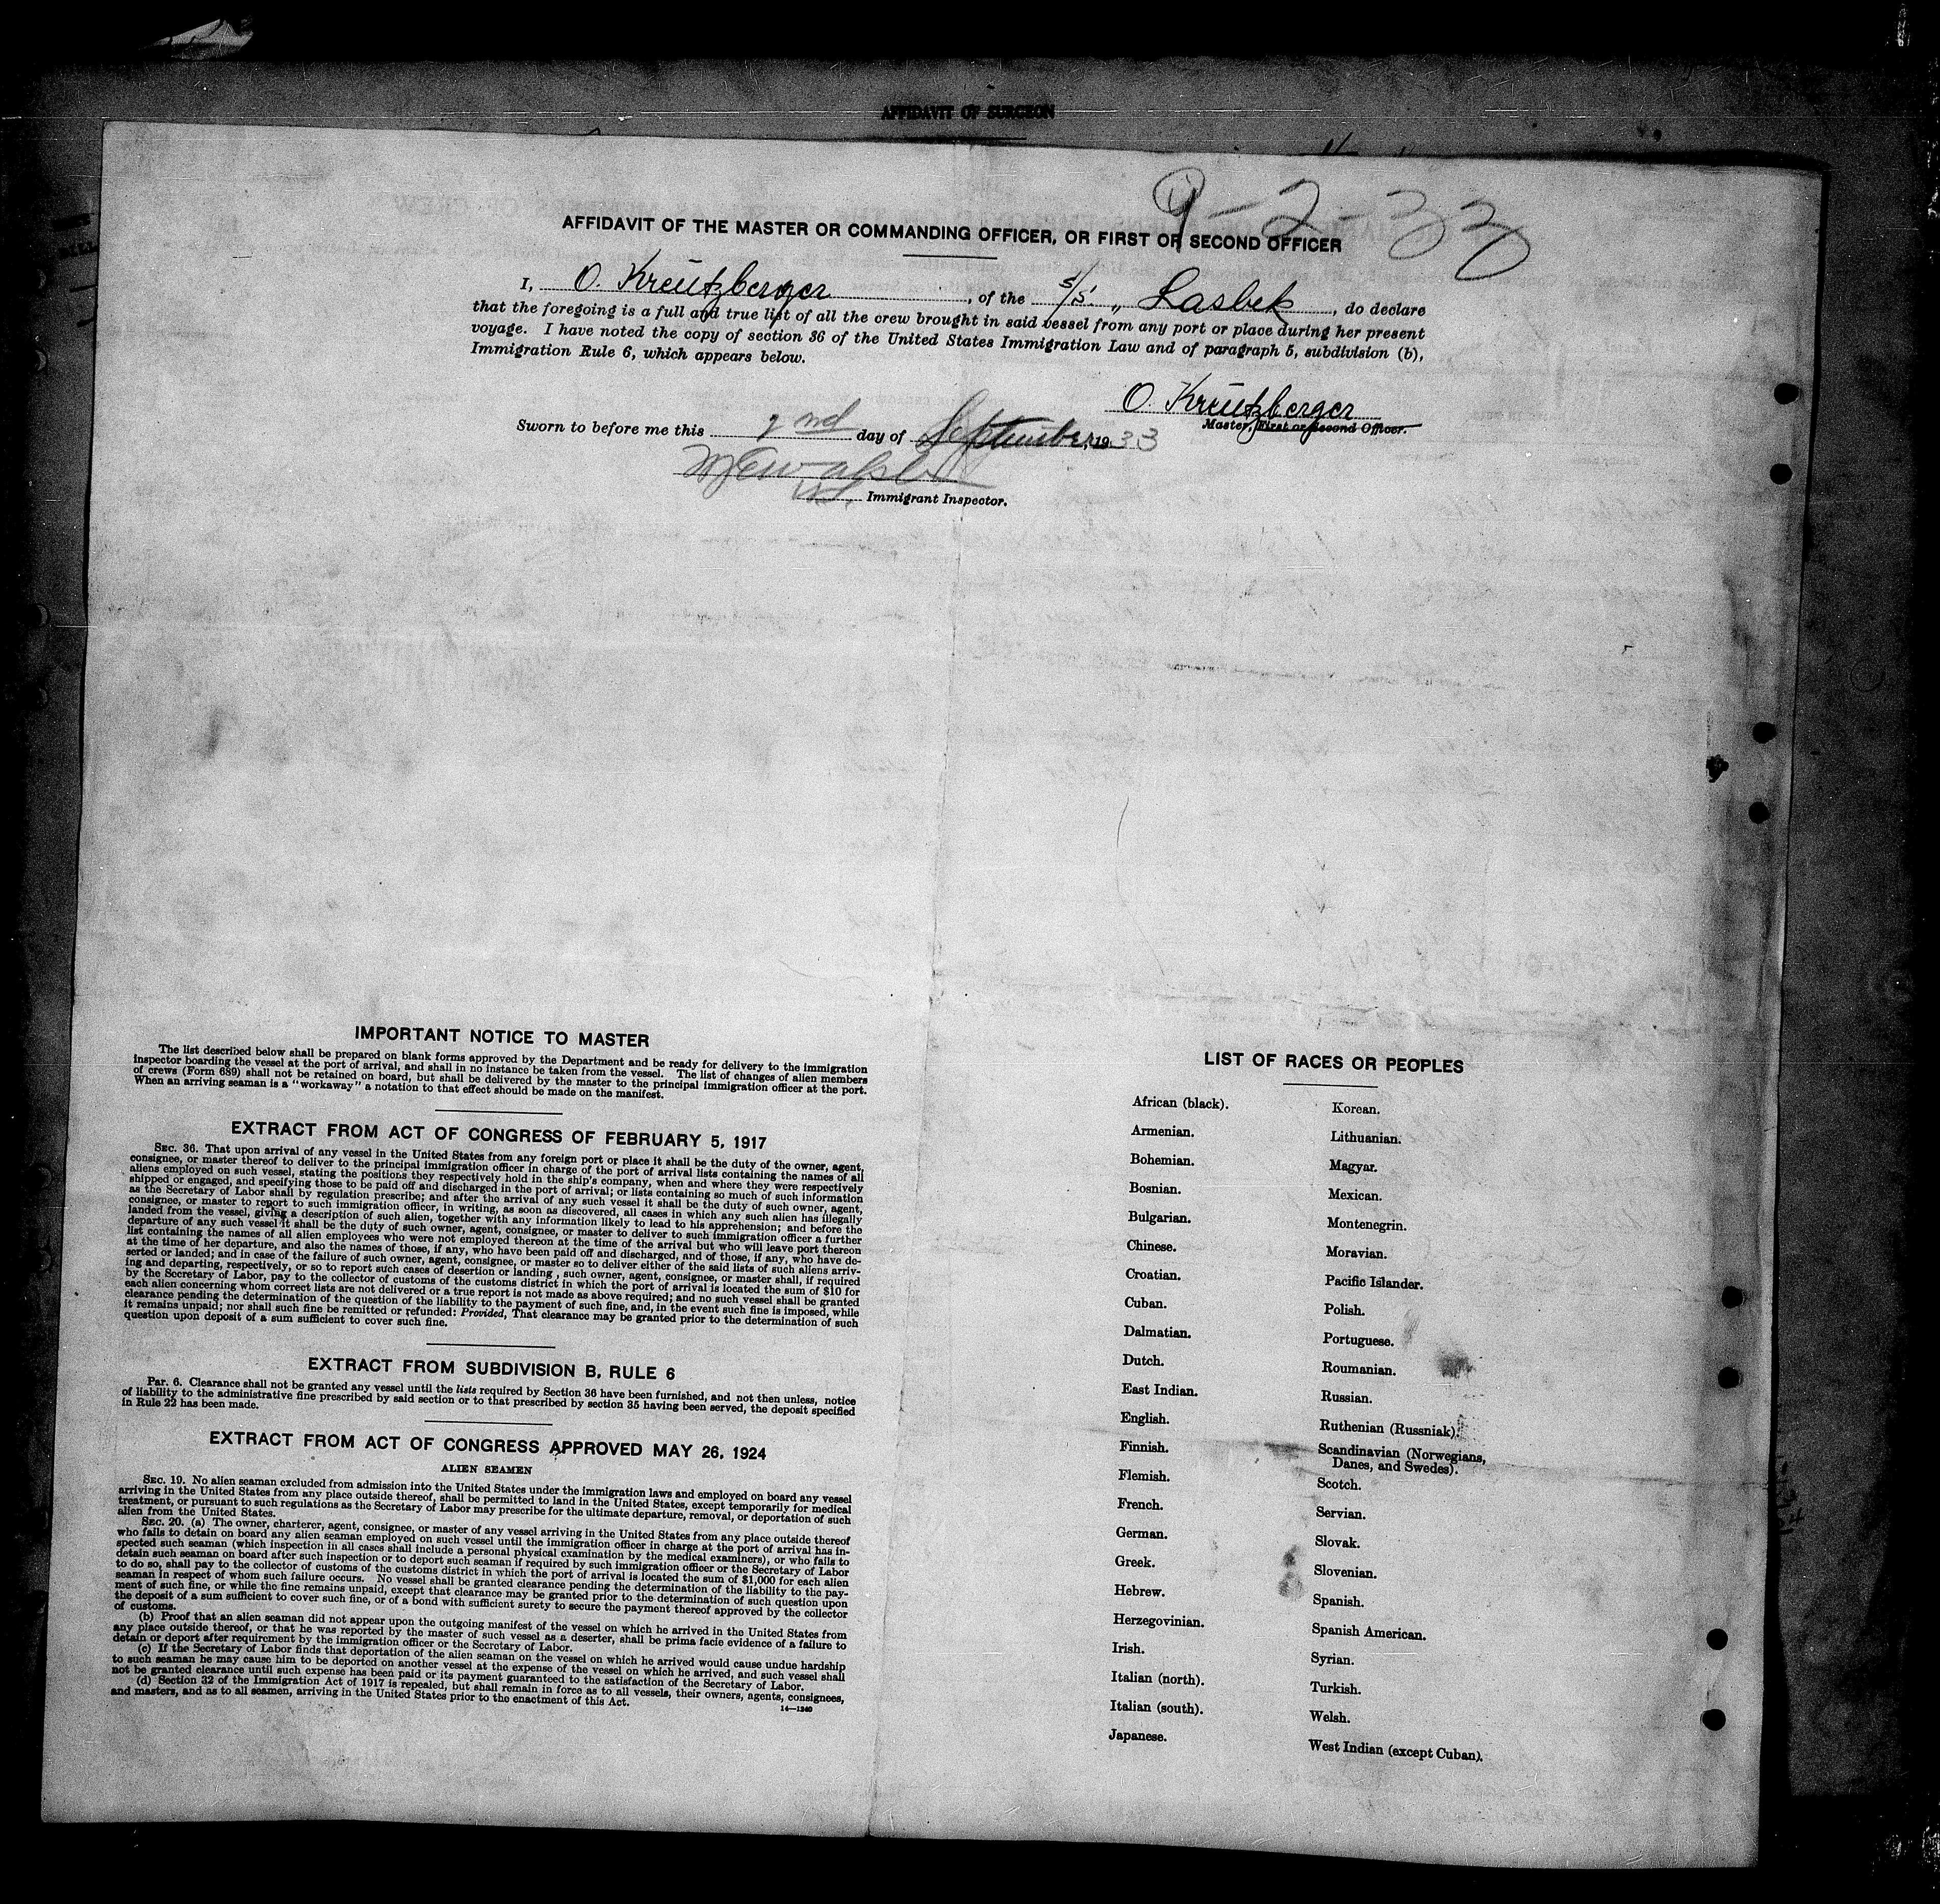 AFFIDAVIT OF SURGEON
9-2-33
AFFIDAVIT OF THE MASTER OR COMMANDING OFFICER, OR FIRST OR SECOND OFFICER
I, O. Kreützberger, of the S/S. „ Lasbek, do declare
that the foregoing is a full and true list of all the crew brought in said vessel from any port or place during her present
voyage. I have noted the copy of section 36 of the United States Immigration Law and of paragraph 5, subdivision (b),
Immigration Rule 6, which appears below.
O. Kreützberger
Master, First or Second Officer.
Sworn to before me this 2nd day of September, 1933
Immigrant Inspector.
IMPORTANT NOTICE TO MASTER
The list described below shall be prepared on blank forms approved by the Department and be ready for delivery to the immigration
inspector boarding the vessel at the port of arrival, and shall in no instance be taken from the vessel. The list of changes of alien members
of crews (Form 689) shall not be retained on board, but shall be delivered by the master to the principal immigration officer at the port.
When an arriving seaman is a "workaway" a notation to that effect should be made on the manifest.
EXTRACT FROM ACT OF CONGRESS OF FEBRUARY 5, 1917
SEC. 36. That upon arrival of any vessel in the United States from any foreign port or place it shall be the duty of the owner, agent,
consignee, or master thereof to deliver to the principal immigration officer in charge of the port of arrival lists containing the names of all
aliens employed on such vessel, stating the positions they respectively hold in the ship's company, when and where they were respectively
shipped or engaged, and specifying those to be paid off and discharged in the port of arrival; or lists containing so much of such information
as the Secretary of Labor shall by regulation prescribe; and after the arrival of any such vessel it shall be the duty of such owner, agent,
consignee, or master to report to such immigration officer, in writing, as soon as discovered, all cases in which any such alien has illegally
landed from the vessel, giving a description of such alien, together with any information likely to lead to his apprehension; and before the
departure of any such vessel it shall be the duty of such owner, agent, consignee, or master to deliver to such immigration officer a further
list containing the names of all alien employees who were not employed thereon at the time of the arrival but who will leave port thereon
at the time of her departure, and also the names of those, if any, who have been paid off and discharged, and of those, if any, who have de-
serted or landed; and in case of the failure of such owner, agent, consignee, or master so to deliver either of the said lists of such aliens arriv-
ing and departing, respectively, or so to report such cases of desertion or landing , such owner, agent, consignee, or master shall, if required
by the Secretary of Labor, pay to the collector of customs of the customs district in which the port of arrival is located the sum of $10 for
each alien concerning whom correct lists are not delivered or a true report is not made as above required; and no such vessel shall be granted
clearance pending the determination of the question of the liability to the payment of such fine, and, in the event such fine is imposed, while
it remains unpaid; nor shall such fine be remitted or refunded: Provided, That clearance may be granted prior to the determination of such
question upon deposit of a sum sufficient to cover such fine.
EXTRACT FROM SUBDIVISION B, RULE 6
Par. 6. Clearance shall not be granted any vessel until the lists required by Section 36 have been furnished, and not then unless, notice
of liability to the administrative fine prescribed by said section or to that prescribed by section 35 having been served, the deposit specified
in Rule 22 has been made.
EXTRACT FROM ACT OF CONGRESS APPROVED MAY 26, 1924
ALIEN SEAMEN
SEC. 19. No alien seaman excluded from admission into the United States under the immigration laws and employed on board any vessel
arriving in the United States from any place outside thereof, shall be permitted to land in the United States, except temporarily for medical
treatment, or pursuant to such regulations as the Secretary of Labor may prescribe for the ultimate departure, removal, or deportation of such
alien from the United States.
SEC. 20. (a) The owner, charterer, agent, consignee, or master of any vessel arriving in the United States from any place outside thereof
who fails to detain on board any alien seaman employed on such vessel until the immigration officer in charge at the port of arrival has in-
spected such seaman (which inspection in all cases shall include a personal physical examination by the medical examiners), or who fails to
detain such seaman on board after such inspection or to deport such seaman if required by such immigration officer or the Secretary of Labor
to do so, shall pay to the collector of customs of the customs district in which the port of arrival is located the sum of $1,000 for each alien
seaman in respect of whom such failure occurs. No vessel shall be granted clearance pending the determination of the liability to the pay-
ment of such fine, or while the fine remains unpaid, except that clearance may be granted prior to the determination of such question upon
the deposit of a sum sufficient to cover such fine, or of a bond with sufficient surety to secure the payment thereof approved by the collector
of customs.
(b) Proof that an alien seaman did not appear upon the outgoing manifest of the vessel on which he arrived in the United States from
any place outside thereof, or that he was reported by the master of such vessel as a deserter, shall be prima facie evidence of a failure to
detain or deport after requirement by the immigration officer or the Secretary of Labor.
(c) If the Secretary of Labor finds that deportation of the alien seaman on the vessel on which he arrived would cause undue hardship
to such seaman he may cause him to be deported on another vessel at the expense of the vessel on which he arrived, and such vessel shall
not be granted clearance until such expense has been paid or its payment guaranteed to the satisfaction of the Secretary of Labor.
(d) Section 32 of the Immigration Act of 1917 is repealed, but shall remain in force as to all vessels, their owners, agents, consignees,
and masters, and as to all seamen, arriving in the United States prior to the enactment of this Act.
14—1240
LIST OF RACES OR PEOPLES
African (black).
Armenian.
Bohemian.
Bosnian.
Bulgarian.
Chinese.
Croatian.
Cuban.
Dalmatian.
Dutch.
East Indian.
English.
Finnish.
Flemish.
French.
German.
Greek.
Hebrew.
Herzegovinian.
Irish.
Italian (north).
Italian (south).
Japanese.
Korean.
Lithuanian.
Magyar.
Mexican.
Montenegrin.
Moravian.
Pacific Islander.
Polish.
Portuguese.
Roumanian.
Russian.
Ruthenian (Russniak).
Scandinavian (Norwegians,
Danes, and Swedes).
Scotch.
Servian.
Slovak.
Slovenian.
Spanish.
Spanish American.
Syrian.
Turkish.
Welsh.
West Indian (except Cuban).